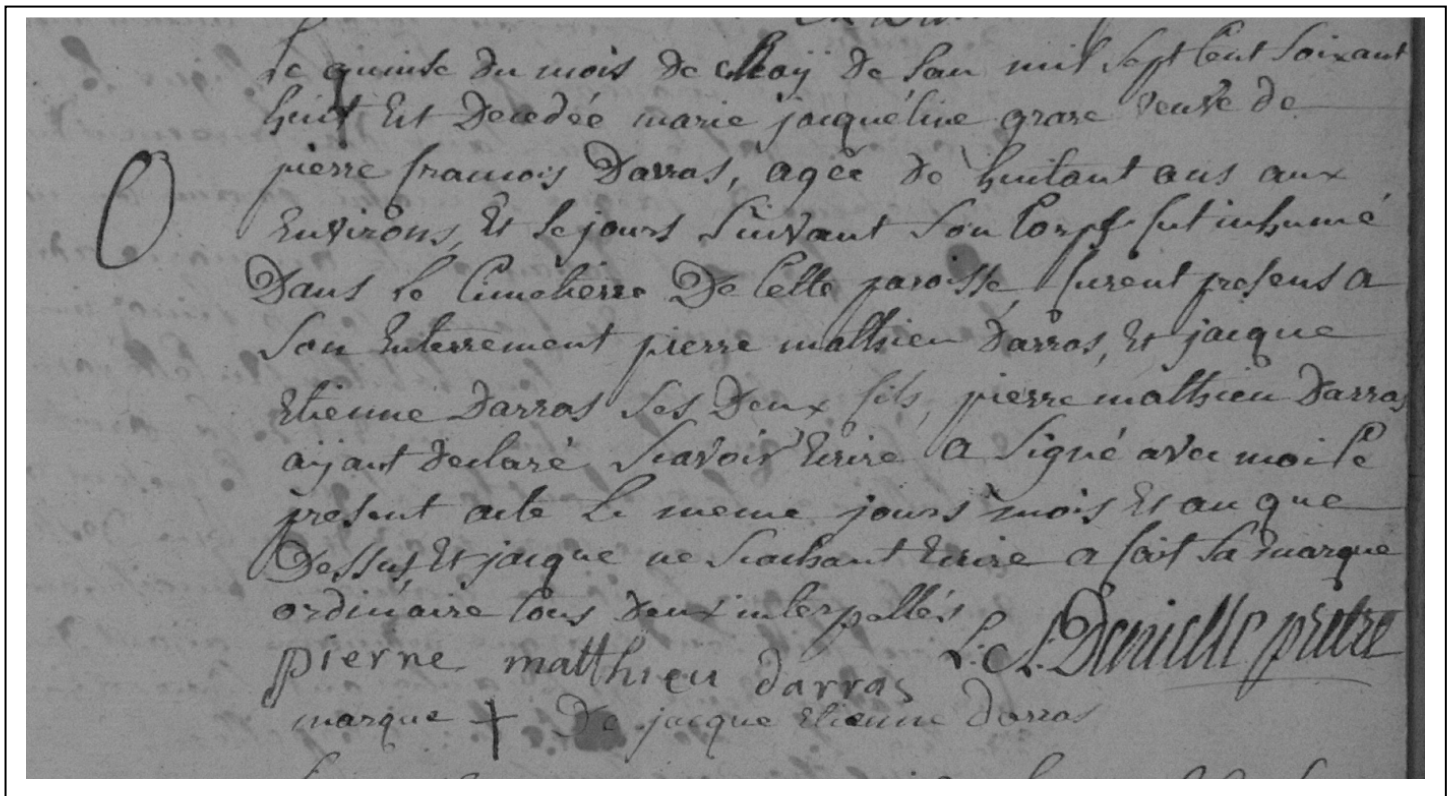 Le quinse du mois de May de lan mil sept cent soixant
huit Est Decedée marie jacquéline grare veuve de
pierre francois Darras, agée de huitant ans aux
Environs, Et le jours suivant son Corps fut inhumé
Dans le Cimetierre De Cette paroisse, furent presens a
son Enterrement pierre matthieu Darras, Et jacque
Etienne Darras ses Deux fils, pierre matthieu Darras
aÿant declaré scavoir Ecrire a signé avec moi le
présent acte le meme jours mois Et an que
Dessus, Et jacque ne scachant Ecrire a fait sa marque
ordinaire tous deux interpellés
pierre matthieu darras
Danielle prêtre
marque + De jacque Etienne Darras